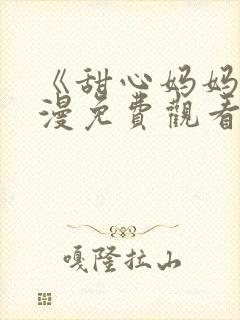 《甜心妈妈
漫免費觀看
嘎隆拉山